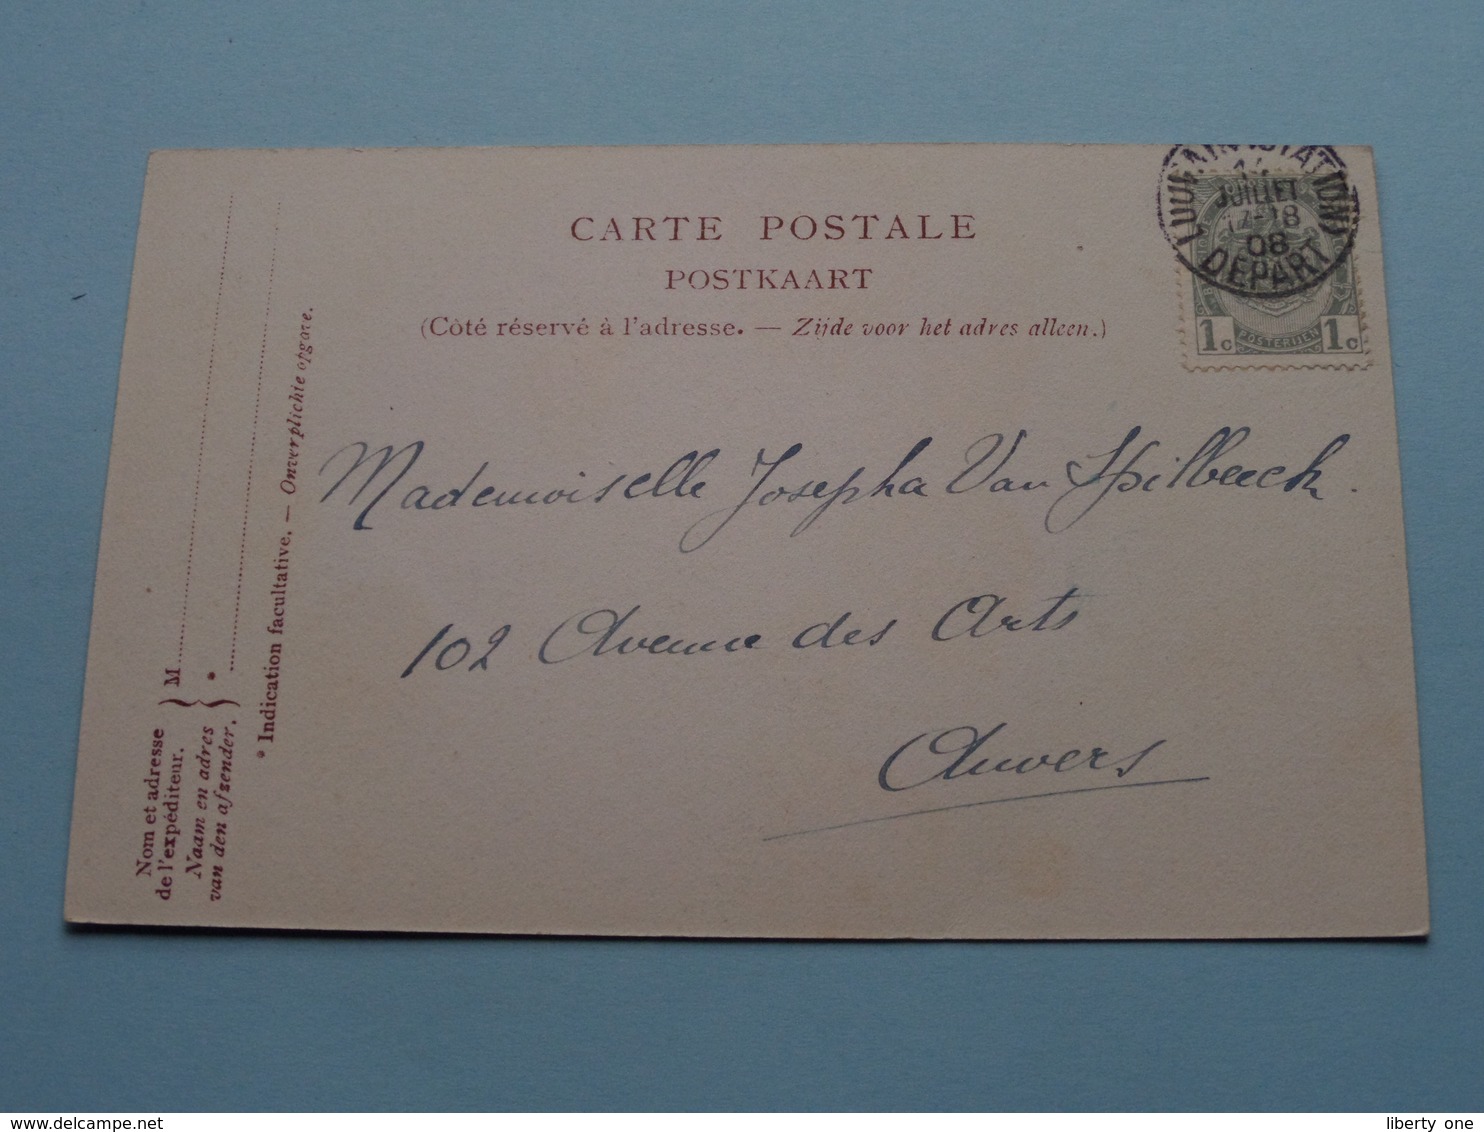 CARTE POSTALE
POSTKAART
(Côté réservé à l'adresse. — Zijde voor het adres alleen.)
LOUVAIN (STATION)
14
JUILLET
17-18
08
DEPART
1c POSTERIJEN 1c
Mademoiselle Josepha Van Spilbeeck.
102 Avenue des Arts
Anvers
Nom et adresse
de l'expéditeur.
Naam en adres
van den afzender.
M
*
* Indication facultative. — Onverplichte opgave.
liberty one